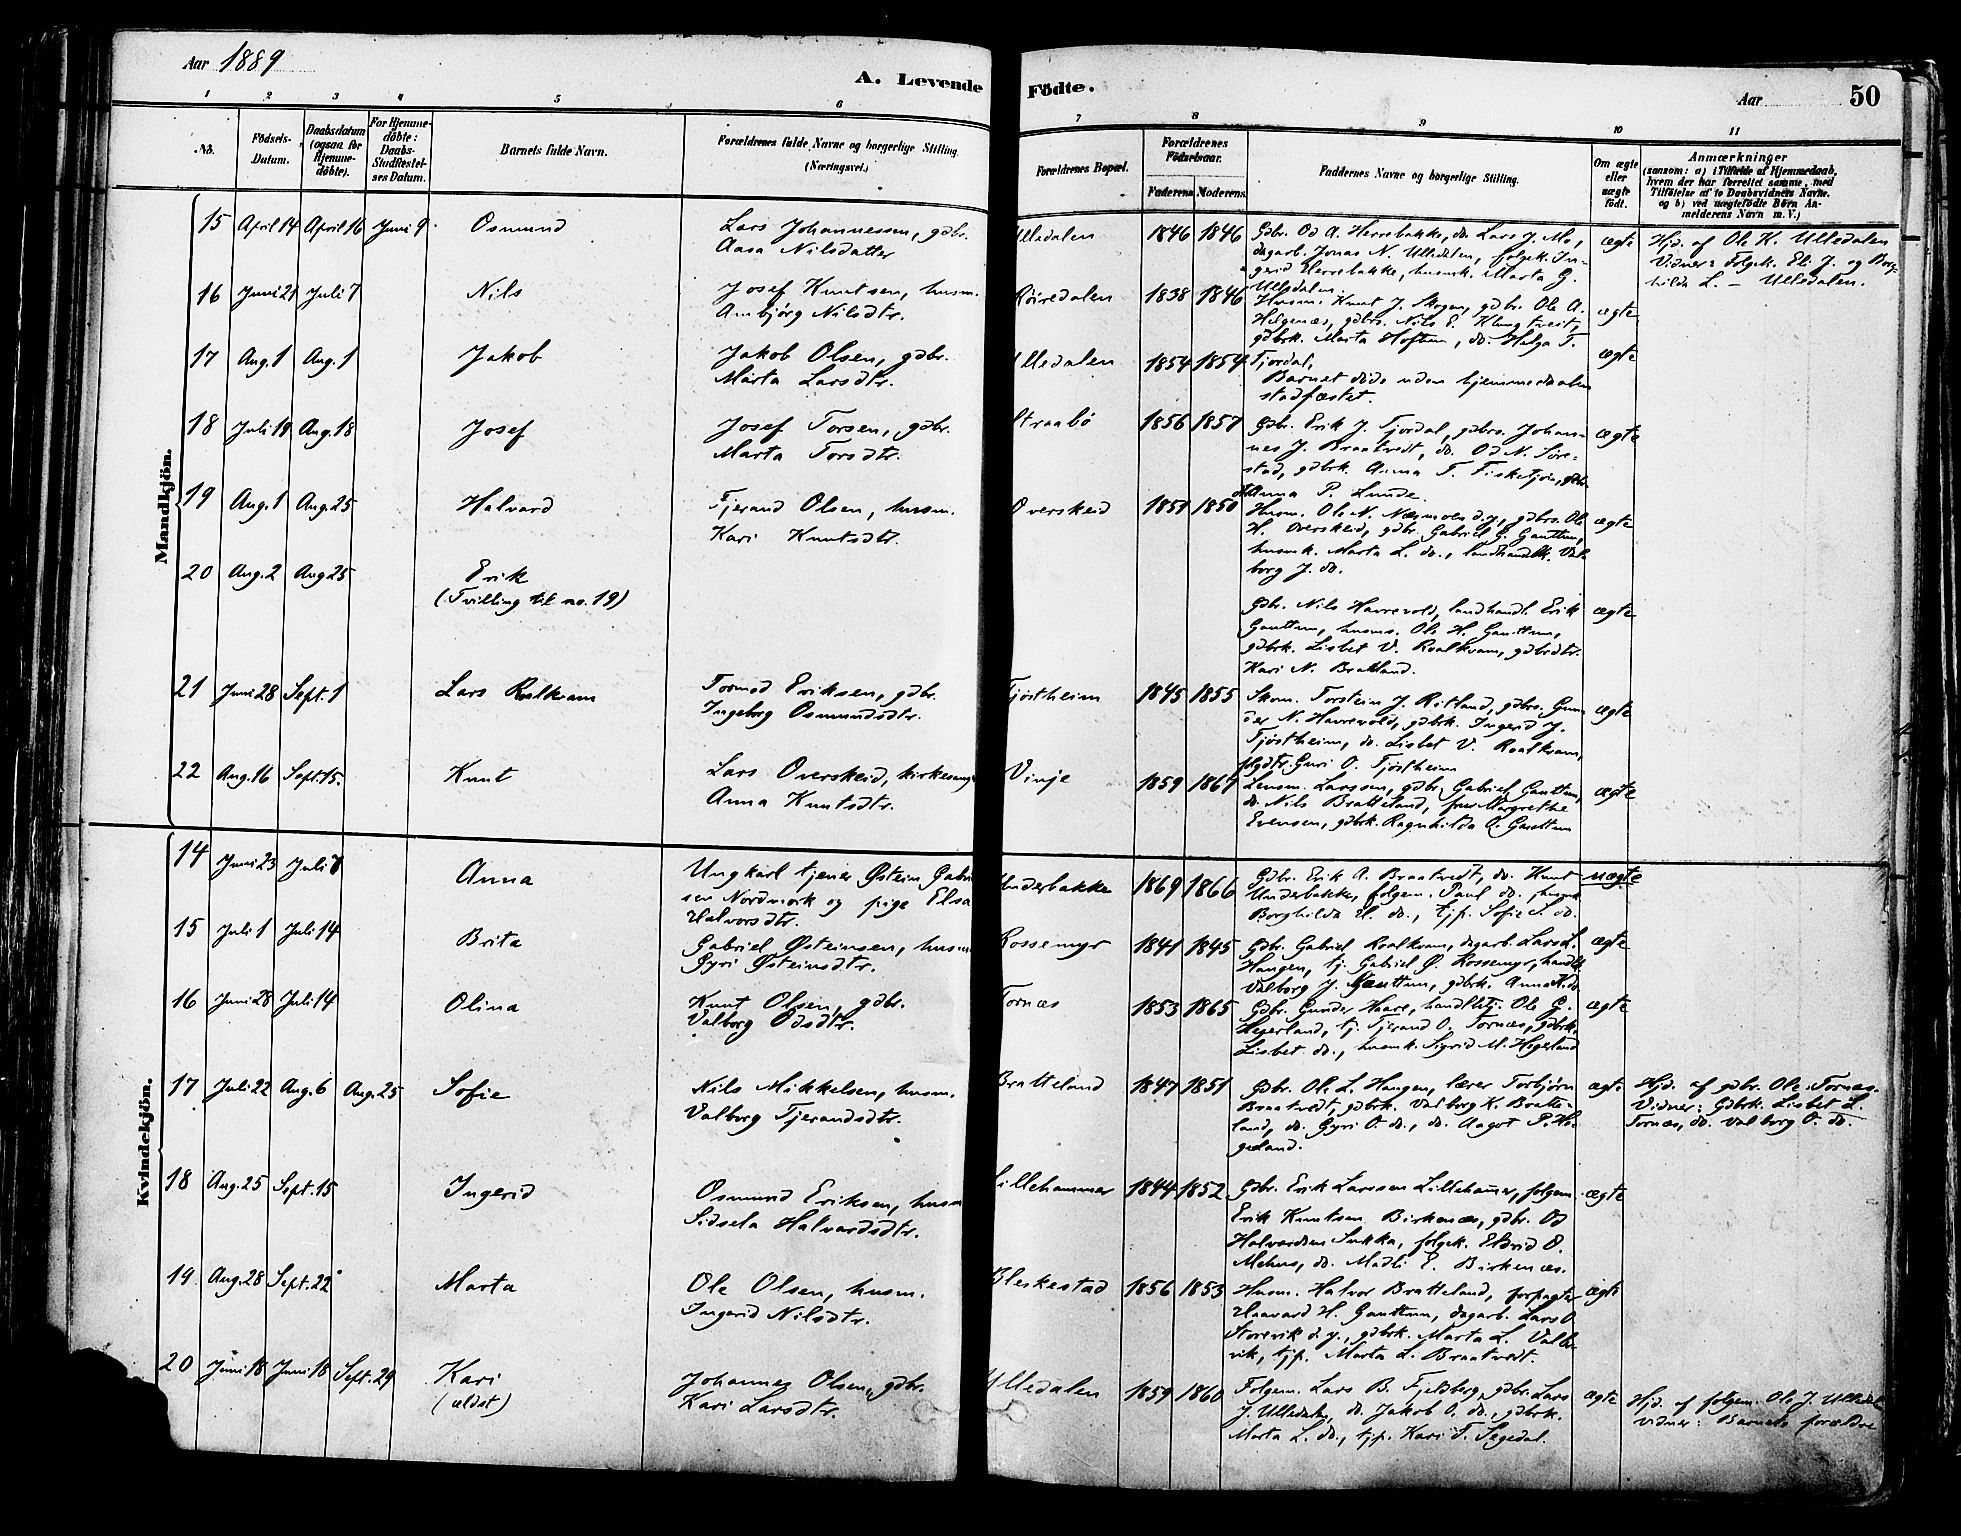 Aar 1889
A. Levende Födte.
Aar 50
1 2 3 4 5 6 7 8 9 10 11
No.
Födsels-Datum.
Daabsdatum (ogsaa for Hjemmedöbte).
For Hjemmedöbte: Daabs-Stadfæstelses Datum.
Barnets fulde Navn.
Forældrenes fulde Navne og borgerlige Stilling. (Næringsvei.)
Forældrenes Bopæl.
Forældrenes Fødselsaar.
Faderens Moderens
Faddernes Navne og borgerlige Stilling.
Om ægte eller uægte født.
Anmærkninger
(saasom: a) i Tilfælde af Hjemmedaab, hvem der har forrettet samme, med Tilføielse af to Daabsvidners Navne. og b) ved uægtefödte Börn Anmelderens Navn m. V.)
Mandkjön.
15 April 14 April 16 Juni 9 Osmund
Lars Johannessen, gdbr.
Aasa Nilsdatter
Ulledalen 1846 1846
Gdbr. Od A. Herrebakke, do. Lars J. Mo,
dagarb. Jonas N. Ulledalen, folgek. In-
gerid Herrebakke, husmk. Marta G.
Ulledalen.
ægte
Hjd. af Ole K. Ulledalen
Vidner: Folgek. Eli J. og Borg-
hilda L. – Ulledalen.
16 Juni 21 Juli 7 Nils
Josef Knutsen, husm.
Anbjørg Nilsdtr.
Röiredalen 1838 1846
Husm. Knut J. Mogen, gdbr. Ole A.
Helgenæs, gdbrs. Nils E. Klungtveit,
gdbrk. Marta Hoftun, do. Helga T.
Tjordal,
ægte
17 Aug. 1 Aug. 1 Jakob
Jakob Olsen, gdbr.
Marta Larsdtr.
Ulledalen 1854 1854
Barnet døde uden hjemmedaaben
stadfæstet.
ægte
18 Juli 19 Aug. 18 Josef
Josef Torsen, gdbr.
Marta Torsdtr.
Straabö 1856 1857
Gdbr. Erik J. Tjordal, gdbrs. Johan-
nes J. Braatvedt, do. Od N. Søre-
stad, gdbrk. Anna T. Fisketjön,
Anna P. Lunde.
ægte
19 Aug. 1 Aug. 25 Halvard
Tjerand Olsen, husm.
Kari Knutsdtr.
Overskeid 1851 1850
Husm. Ole N. Næsmoen d.y., gdbrs. Ole
H. Overskeid, gdbr. Gabriel G. Gauttun,
husmk. Marta L. do., landhandlk. Val-
borg J. do.
ægte
20 Aug. 2 Aug 25 Erik
(Tvilling til no. 19)
Gdbr. Nils Havrevold, landhandl. Erik
Gauttun, husms. Ole H. Gauttun,
gdbrk. Lisbet V. Roalkvam, gdbrdtr.
Kari N. Brakland.
ægte
21 Juni 28 Sept. 1 Lars Roalkvam
Tormod Eriksen, gdbr.
Ingeborg Osmundsdtr.
Tjöstheim 1845 1855
Skom. Torstein J. Ritland, gdbrs. Gun-
der N. Havrevold, gdbrk. Ingerid J.
Tjöstheim, do. Lisbet V. Roalkvam,
folgdtr. Guri O. Tjöstheim
ægte
22 Aug. 16 Sept. 15. Knut
Lars Overskeid, kirkesang
Anna Knutsdtr.
Vinje 1859 1867
Lensm. Larssen, gdbr. Gabriel Gauttun,
do. Nils Bratteland, frue Margrethe
Evensen, gdbrk. Ragnhilda O. Gauttun
ægte
Kvindekjön.
14 Juni 23 Juli 7 Anna
Ungkarl tjener Østein Gabri
sen Nordmork og pige Elsa
Halvorsdtr.
Underbakke 1869 1866
Gdbr. Erik A. Braatvedt, do. Knut
Underbakke, folgem. Paul do.
Borghilda H. do., tjp. Sofie S. do.
uægte
15 Juli 1 Juli 14 Brita
Gabriel Østeinsen, husm
Gyri Østeinsdtr.
Rossemyr 1841 1845
Gdbr. Gabriel Roalkvam, dagarb. Lars L.
Haugen, tj. Gabriel Ø. Rossemyr, handlk.
Valborg J. Gauttun, gdbrk. Anna K. do
ægte
16 Juni 28 Juli 14 Olina
Knut Olsen, gdbr.
Valborg Odsdtr.
Tornæs 1853 1865
Gdbr. Gunder Haare, handlbtj. Ole G.
Hegerland, tj. Tjerand O. Tornæs, gdbrk.
Lisbet do., husmk. Sigrid M. Hegerland
ægte
17 Juli 22 Aug. 6 Aug. 25 Sofie
Nils Mikkelsen, husm.
Valborg Tjerandsdtr.
Bratteland 1847 1851
Gdbr. Ole L. Haugen, lærer Torbjörn
Braatvedt, gdbrk. Valborg K. Bratte-
land, do. Gyri O. do., do. Aagot P. He-
geland.
ægte
Hjd. af gdbr. Ole Tornæs.
Vidner: Gdbrk. Lisbet L.
Tornæs, do. Valborg O. do.
18 Aug. 25 Sept. 15 Ingerid
Osmund Eriksen, husm
Sidsela Halvardsdtr.
Lillehammer 1844 1852
Gdbr. Erik Larssen Lillehamer, folgem.
Erik Knutsen Birkenæs, gdbr. Od
Halvardsen Sukka, folgek. Elbrid O.
Mehus, do. Madli E. Birkenæs.
ægte
19 Aug. 28 Sept. 22 Marta
Ole Olsen, husm.
Ingerid Nilsdtr.
Bleskestad 1856 1853
Husm. Halvor Bratteland, forpagter
Haavard H. Gauttun, dagarb. Lars O.
Storevik d.y., gdbrk. Marta L. Valbe-
vik, tjp. Marta L. Braatvedt.
ægte
20 Juni 18 Juni 18 Sept. 29 Kari
(ældst)
Johannes Olsen, gdbr.
Kari Larsdtr.
Ulledalen 1859 1860
Folgem. Lars B. Fjelberg, gdbr. Lars
J. Ulledalen, do. Jakob O. do., gdbrk.
Marta L. do., tjp. Kari T. Segedal.
ægte
Hjd. af folgem. Ole J. Ulledal
vidner: Barnets forældre